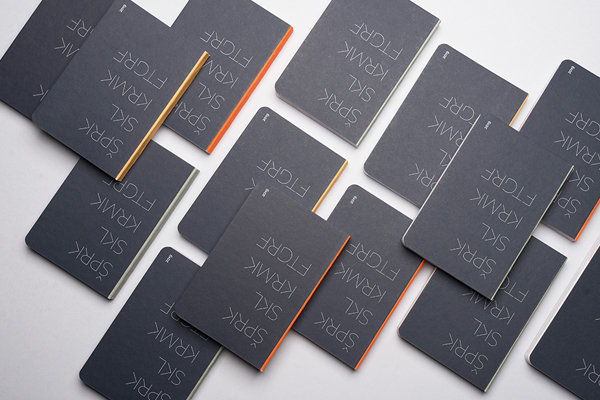 FTGRF
KRMK
SKL
ŠPRK
FTGRF
KRMK
SKL
ŠPRK
FTGRF
KRMK
SKL
ŠPRK
FTGRF
KRMK
SKL
ŠPRK
FTGRF
KRMK
SKL
ŠPRK
FTGRF
KRMK
SKL
ŠPRK
FTGRF
KRMK
SKL
ŠPRK
KRMK
SKL
ŠPRK
SKL
ŠPRK
KRMK
SKL
ŠPRK